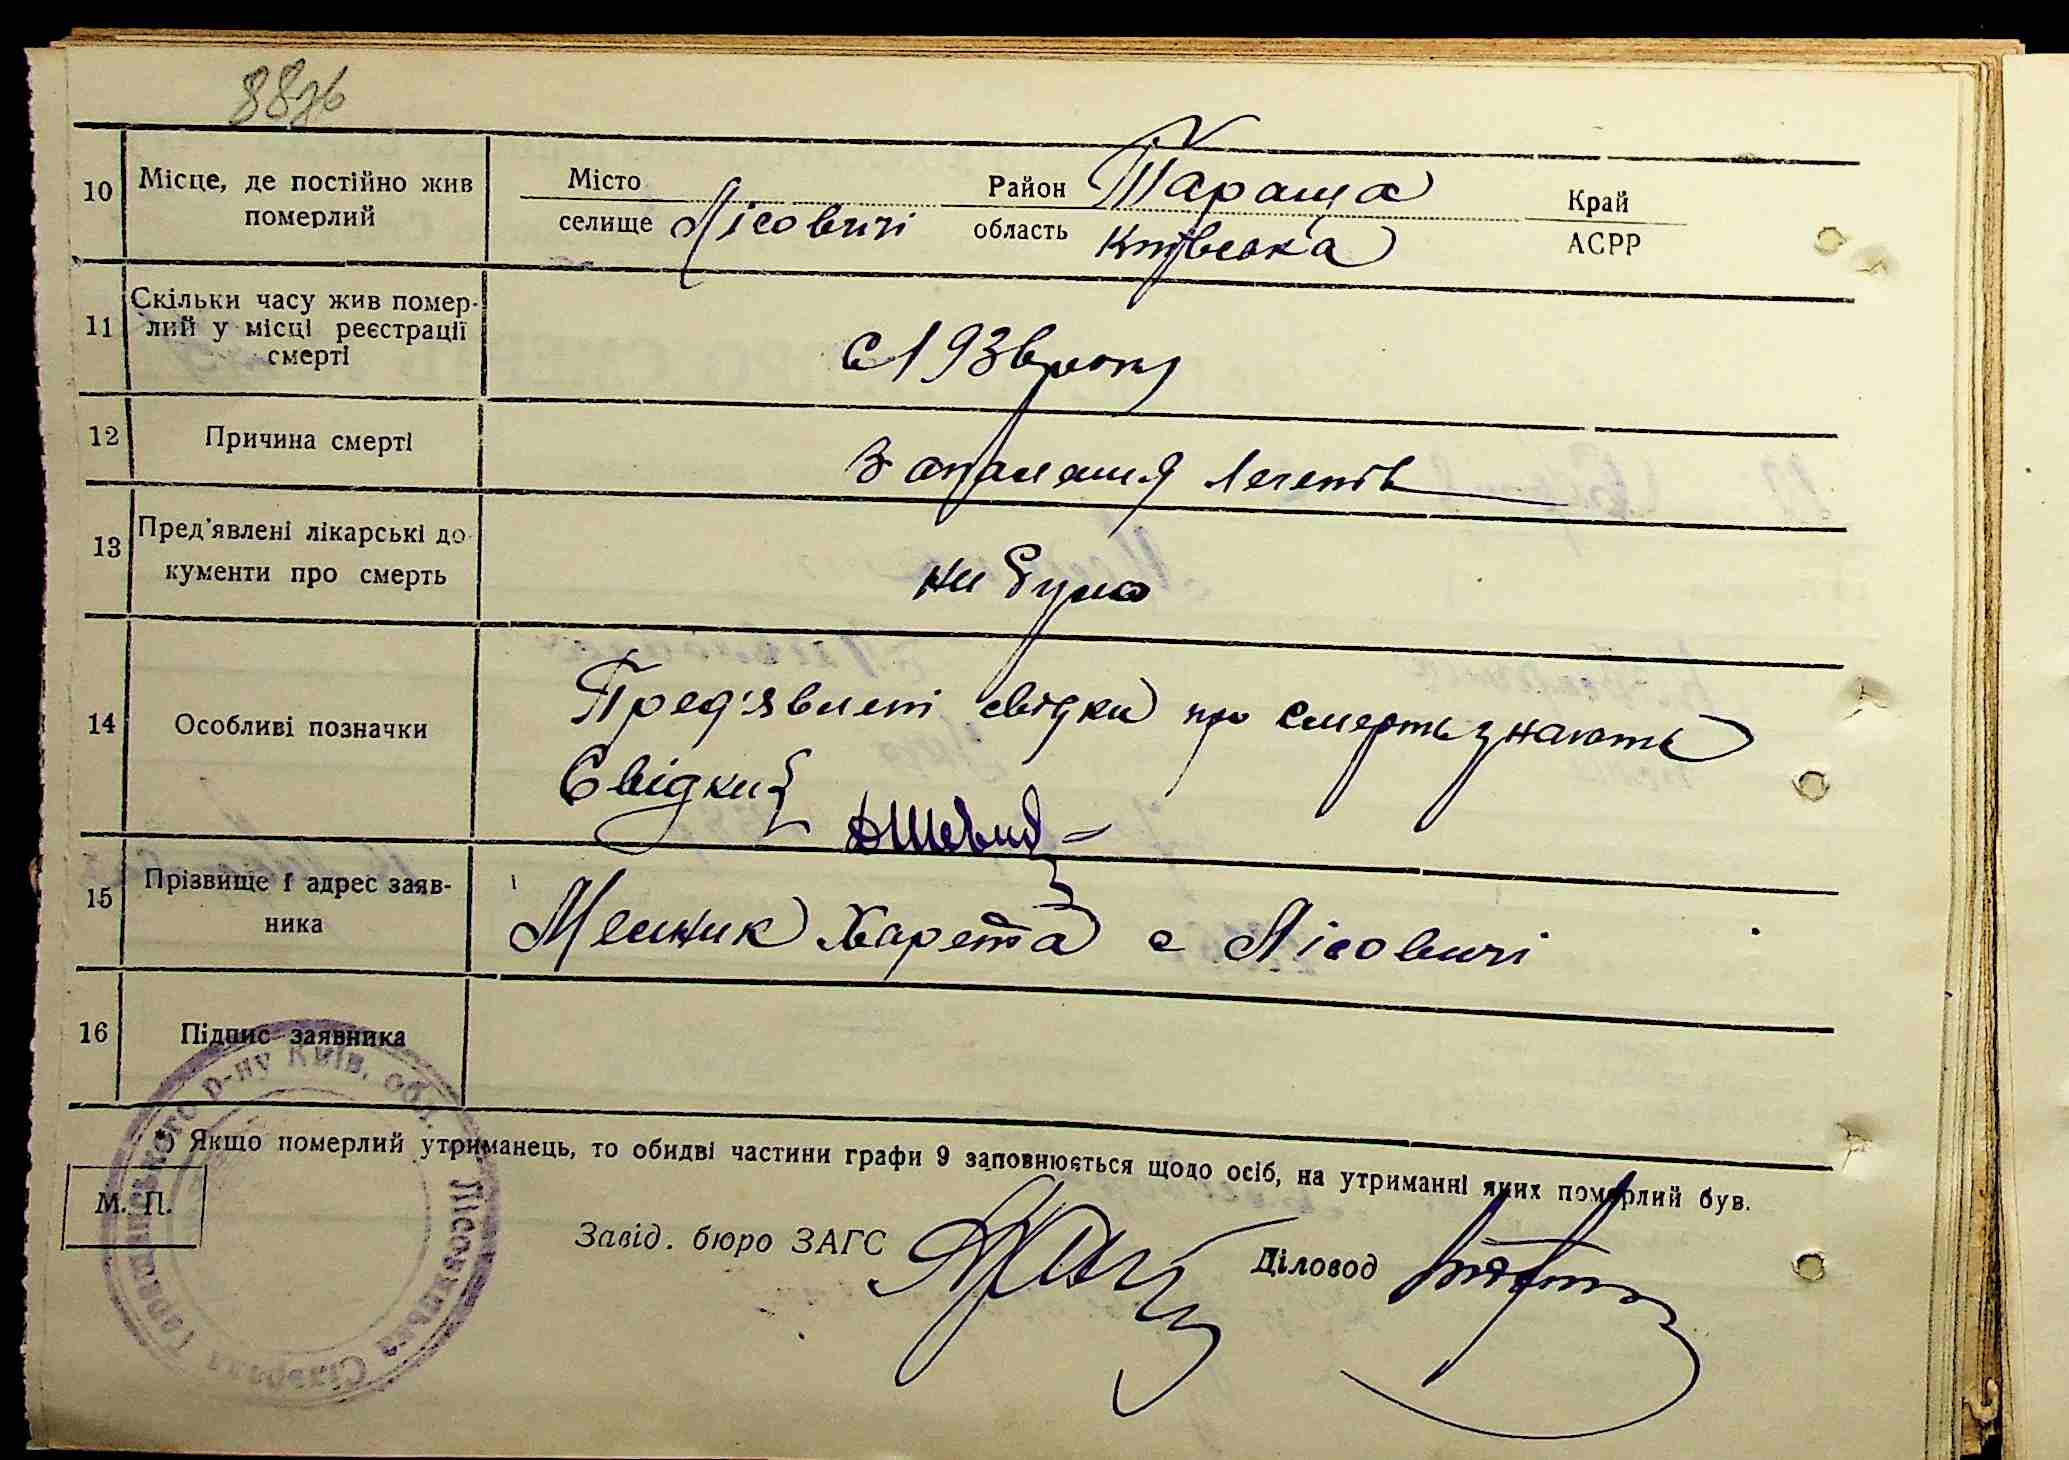 88зв
10 Місце, де постійно жив померлий
Місто
селище Лісовичі
Район Тараща
область Київська
Край
АСРР
11 Скільки часу жив помер-
лий у місці реєстрації
смерті
с 193 року
12 Причина смерті
Запалення легенів
13 Пред'явлені лікарські до-
кументи про смерть
не було
14 Особливі позначки
Пред'явлені свідки про смерть знають
Свідки
15 Прізвище і адрес заяв-
ника
Харета с Лісовичі
16 Підпис заявника
*) Якщо померлий утриманець, то обидві частини графи 9 заповнюється щодо осіб, на утриманні яких померлий був.
М. П.
Завід. бюро ЗАГС
Діловод
Лісовицька Сільрада Таращанського р-ну Київ. обл.